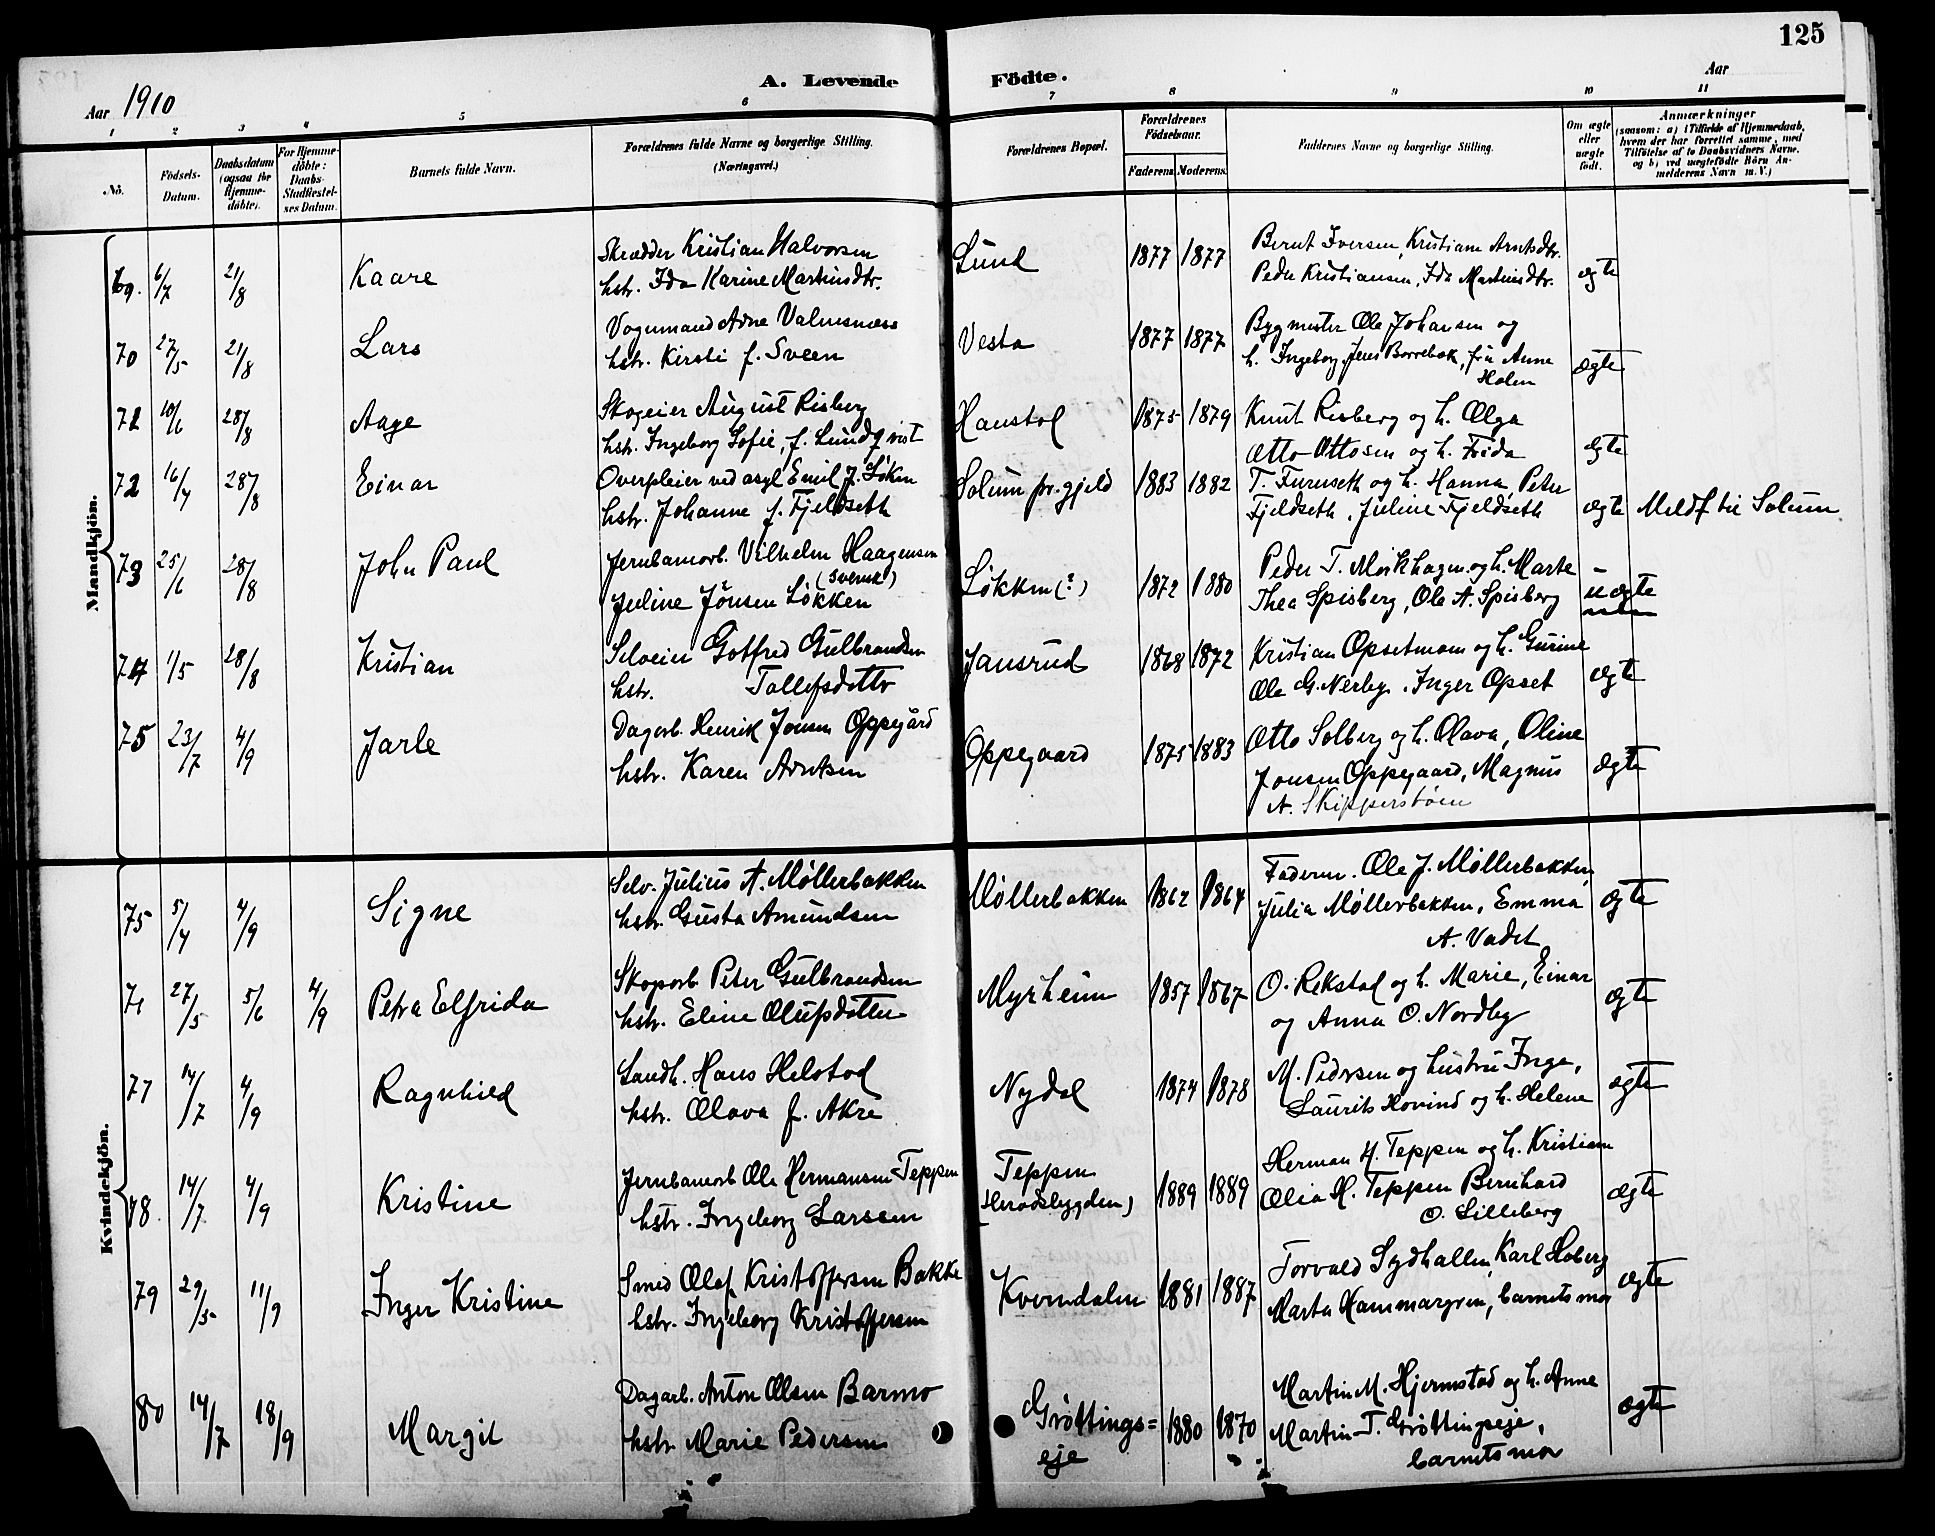 125
A. Levende Födte.
Aar 1910
Aar
1 2 3 4 5 6 7 8 9 10 11
No.
Födsels-Datum.
Daabsdatum (ogsaa for Hjemme-döbte).
For Hjemme-döbte: Daabs-Stadfæstel-ses Datum.
Barnets fulde Navn.
Forældrenes fulde Navne og borgerlige Stilling. (Næringsvei.)
Forældrenes Bopæl.
Forældrenes Födselsaar.
Faderens. Moderens.
Faddernes Navne og borgerlige Stilling.
Om ægte eller uægte födt.
Anmærkninger (saasom: a) i Tilfælde af Hjemmedaab, hvem der har forrettet samme, med Tilföielse af to Daabsvidners Navne. og b) ved uægtefödte Börn An-melderens Navn m. V.)
Mandkjön.
69. 6/7 21/8 Kaare Skrædder Kristian Halvorsen Lund 1877 1877 Bernt Iversen, Kristiane Arntsdtr. ægte
hstr. Ida Karine Martinsdtr. Peder Kristiansen, Ida Martinsdtr.
70 27/5 21/8 Lars Vognmand Arne Valmesnæss Vesta 1877 1877 Bygmester Ole Johansen og ægte
hstr. Kirsti f. Sveen h. Ingeborg, Jens Borrebæk, frk Anne
Holen
71 10/6 28/8 Aage Skogeier August Risberg Hanstol 1875 1879 Knut Risberg og h. Olga ægte
hstr. Ingeborg Sofie, f. Lundqvist Otto Ottosen og h. Frida
72 16/4 28/8 Einar Overpleier ved asyl Emil J. Løken Solum pr.gjeld 1883 1882 T. Furuseth og h. Hanna, Peter ægte Meldt til Solum
hstr. Johanne f. Fjeldseth Fjeldseth, Juline Fjeldseth
73 25/6 28/8 John Paul Jernbanearb. Vilhelm Haagensen Løkken (?) 1872 1880 Peder T. Moikhagen og h. Marte uægte
(svensk)
Juline Jónsen Løkken Thea Spisberg, Ole A. Spisberg
74 1/5 28/8 Kristian Selveier Gotfred Gulbrandsen Jansrud 1868 1872 Kristian Opsetmoen og h. Gurine ægte
hstr. Tollefsdatter Ole G. Nerby, Inger Opset
75 23/7 4/9 Jarle Dagarb. Henrik Jonsen Oppegård Oppegaard 1875 1883 Otto Solberg og h. Olava, Oline ægte
hstr. Karen Arntsen Jonsen Oppegaard, Magnus
A. Skipperstøen
Kvindekjön.
75 5/4 4/9 Signe Selv. Julius A. Møllerbakken Møllerbakken 1862 1864 Faderen. Ole J. Møllerbakken, ægte
hstr. Gusta Amundsen Julia Møllerbakken, Emma
A. Vadet
27/5 5/6 4/9 Petra Elfrida Skogarb Peter Gulbrandsen Myrheim 1857 1867 O. Rekstad og h. Marie, Einar ægte
hstr. Eline Olufsdatter og Anna O. Nordby
77 14/7 4/9 Ragnhild Landh. Hans Helstad Nydal 1874 1878 M. Pedersen og hustru Inga, ægte
hstr. Olava f. Akre Laurits Hovind og h. Helene
78 14/7 4/9 Kristine Jernbanearb Ole Hermansen Teppen Teppen 1889 1889 Herman H. Teppen og h. Kristiane ægte
hstr. Ingeborg Larsen (Heradsbygden) Olia H. Teppen Bernhard
O. Lilleberg
79 29/5 11/9 Inger Kristine Smed Olaf Kristoffersen Bakke Kverndalen 1881 1887 Torvald Sydhallen, Karl Hoberg ægte
hstr. Ingeborg Kristoffersen Marta Hammargren, barnets mor
80 14/7 18/9 Margit Dagarb. Anton Olsen Barmo Grøttings= 1880 1870 Martin M. Hjermstad og h. Anne ægte
hstr Marie Pedersen eje Martin T. Grøttingseje,
barnets mor